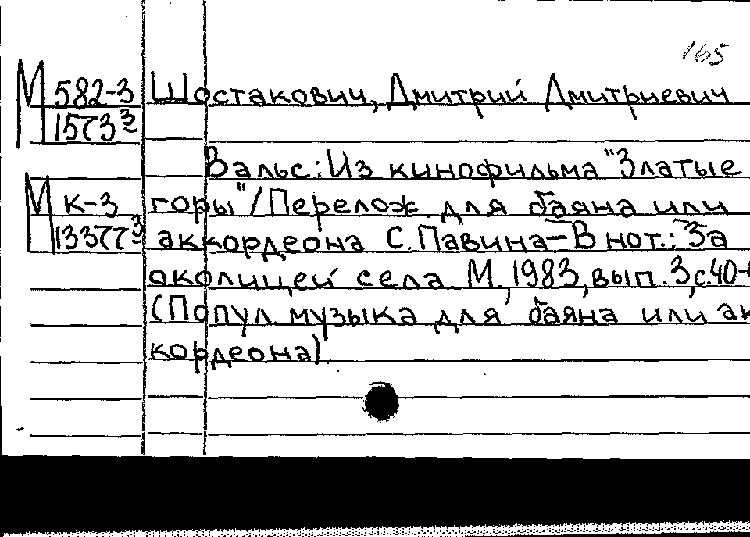 165
М 582-3
1573³
Шостакович, Дмитрий Дмитриевич
Вальс: Из кинофильма "Златые
М К-3
13377³
горы" / Перелож для баяна или
аккордеона С. Павина – В нот.: За
околицей села М, 1983, вып. 3, с. 40-
(Попул музыка для баяна или ак
кордеона)